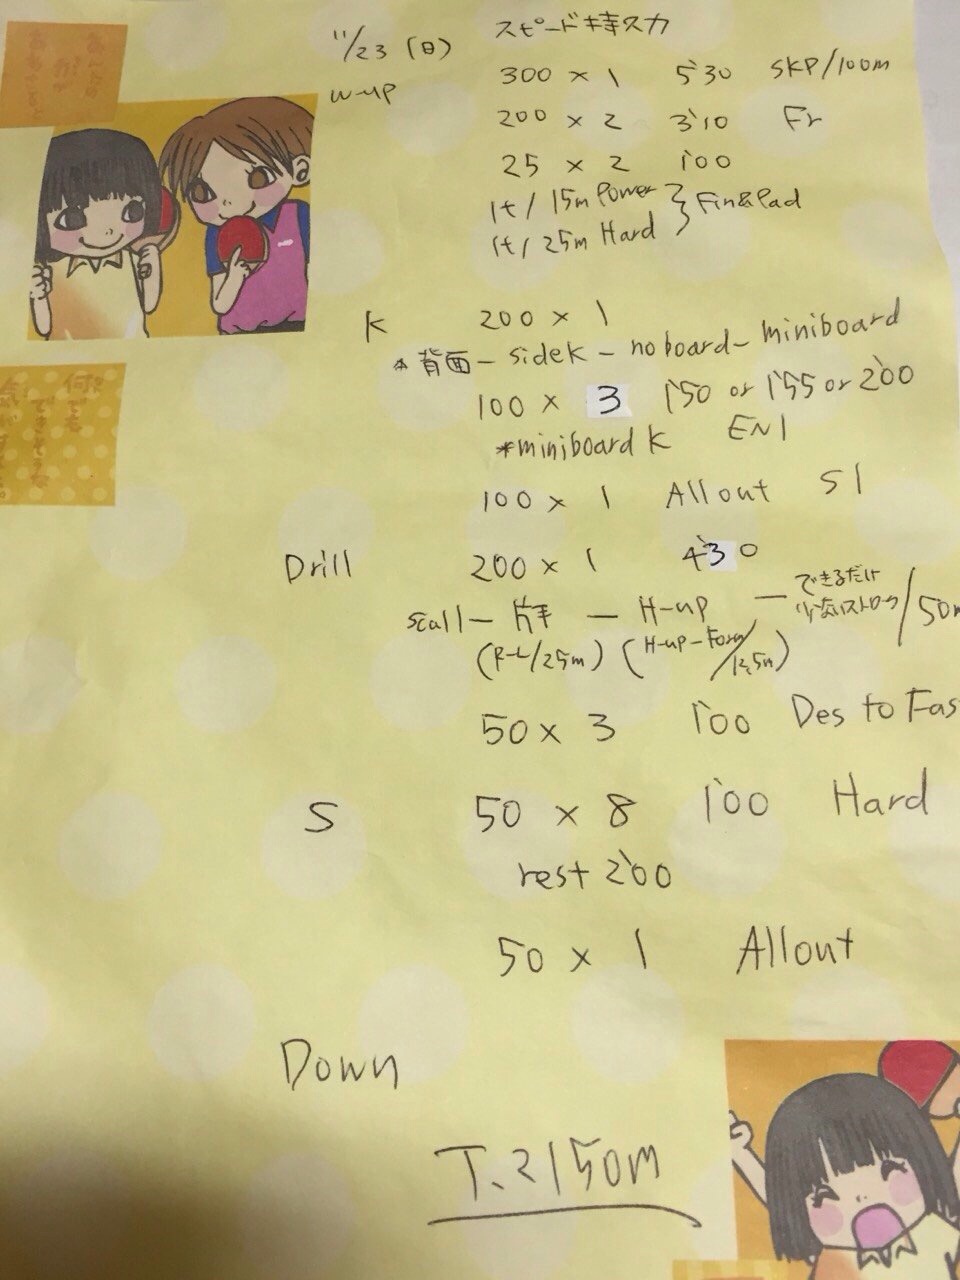 11/23 (日) スピード持久力
W-up 300 × 1 5'30 SKP/100m
200 × 2 3'10 Fr
25 × 2 1'00
1t/15m Power
1t/25m Hard } Fin&Pad
K 200 × 1
* 背面 - sideK - noboard - miniboard
100 × 3 1'50 or 1'55 or 2'00
*miniboard K EN1
100 × 1 Allout S1
Drill 200 × 1 4'30
scall - 片手 - H-up - できるだけ少ないストローク/50m
(R-L/25m) (H-up-Form/12,5m)
50 × 3 1'00 Des to Fas
S 50 × 8 1'00 Hard
rest 2'00
50 × 1 Allout
Down
T. 2150m